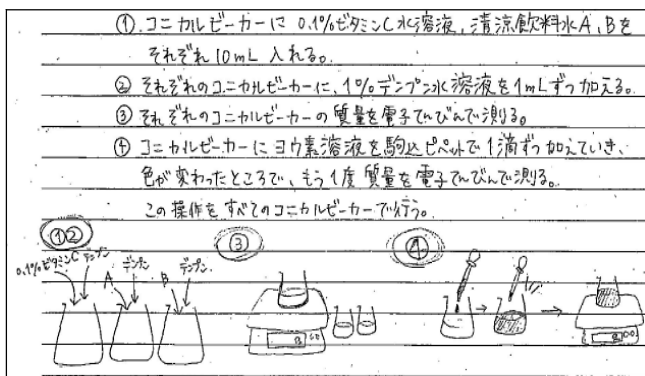 ① コニカルビーカーに 0.1%ビタミンC水溶液, 清涼飲料水A, Bを
それぞれ 10mL 入れる。
② それぞれのコニカルビーカーに、1%デンプン水溶液を1mLずつ加える。
③ それぞれのコニカルビーカーの質量を電子てんびんで測る。
④ コニカルビーカーにヨウ素溶液を駒込ピペットで1滴ずつ加えていき、
色が変わったところで、もう1度質量を電子てんびんで測る。
この操作をすべてのコニカルビーカーで行う。
①② ③ ④
0.1%ビタミンC デンプン A デンプン B デンプン